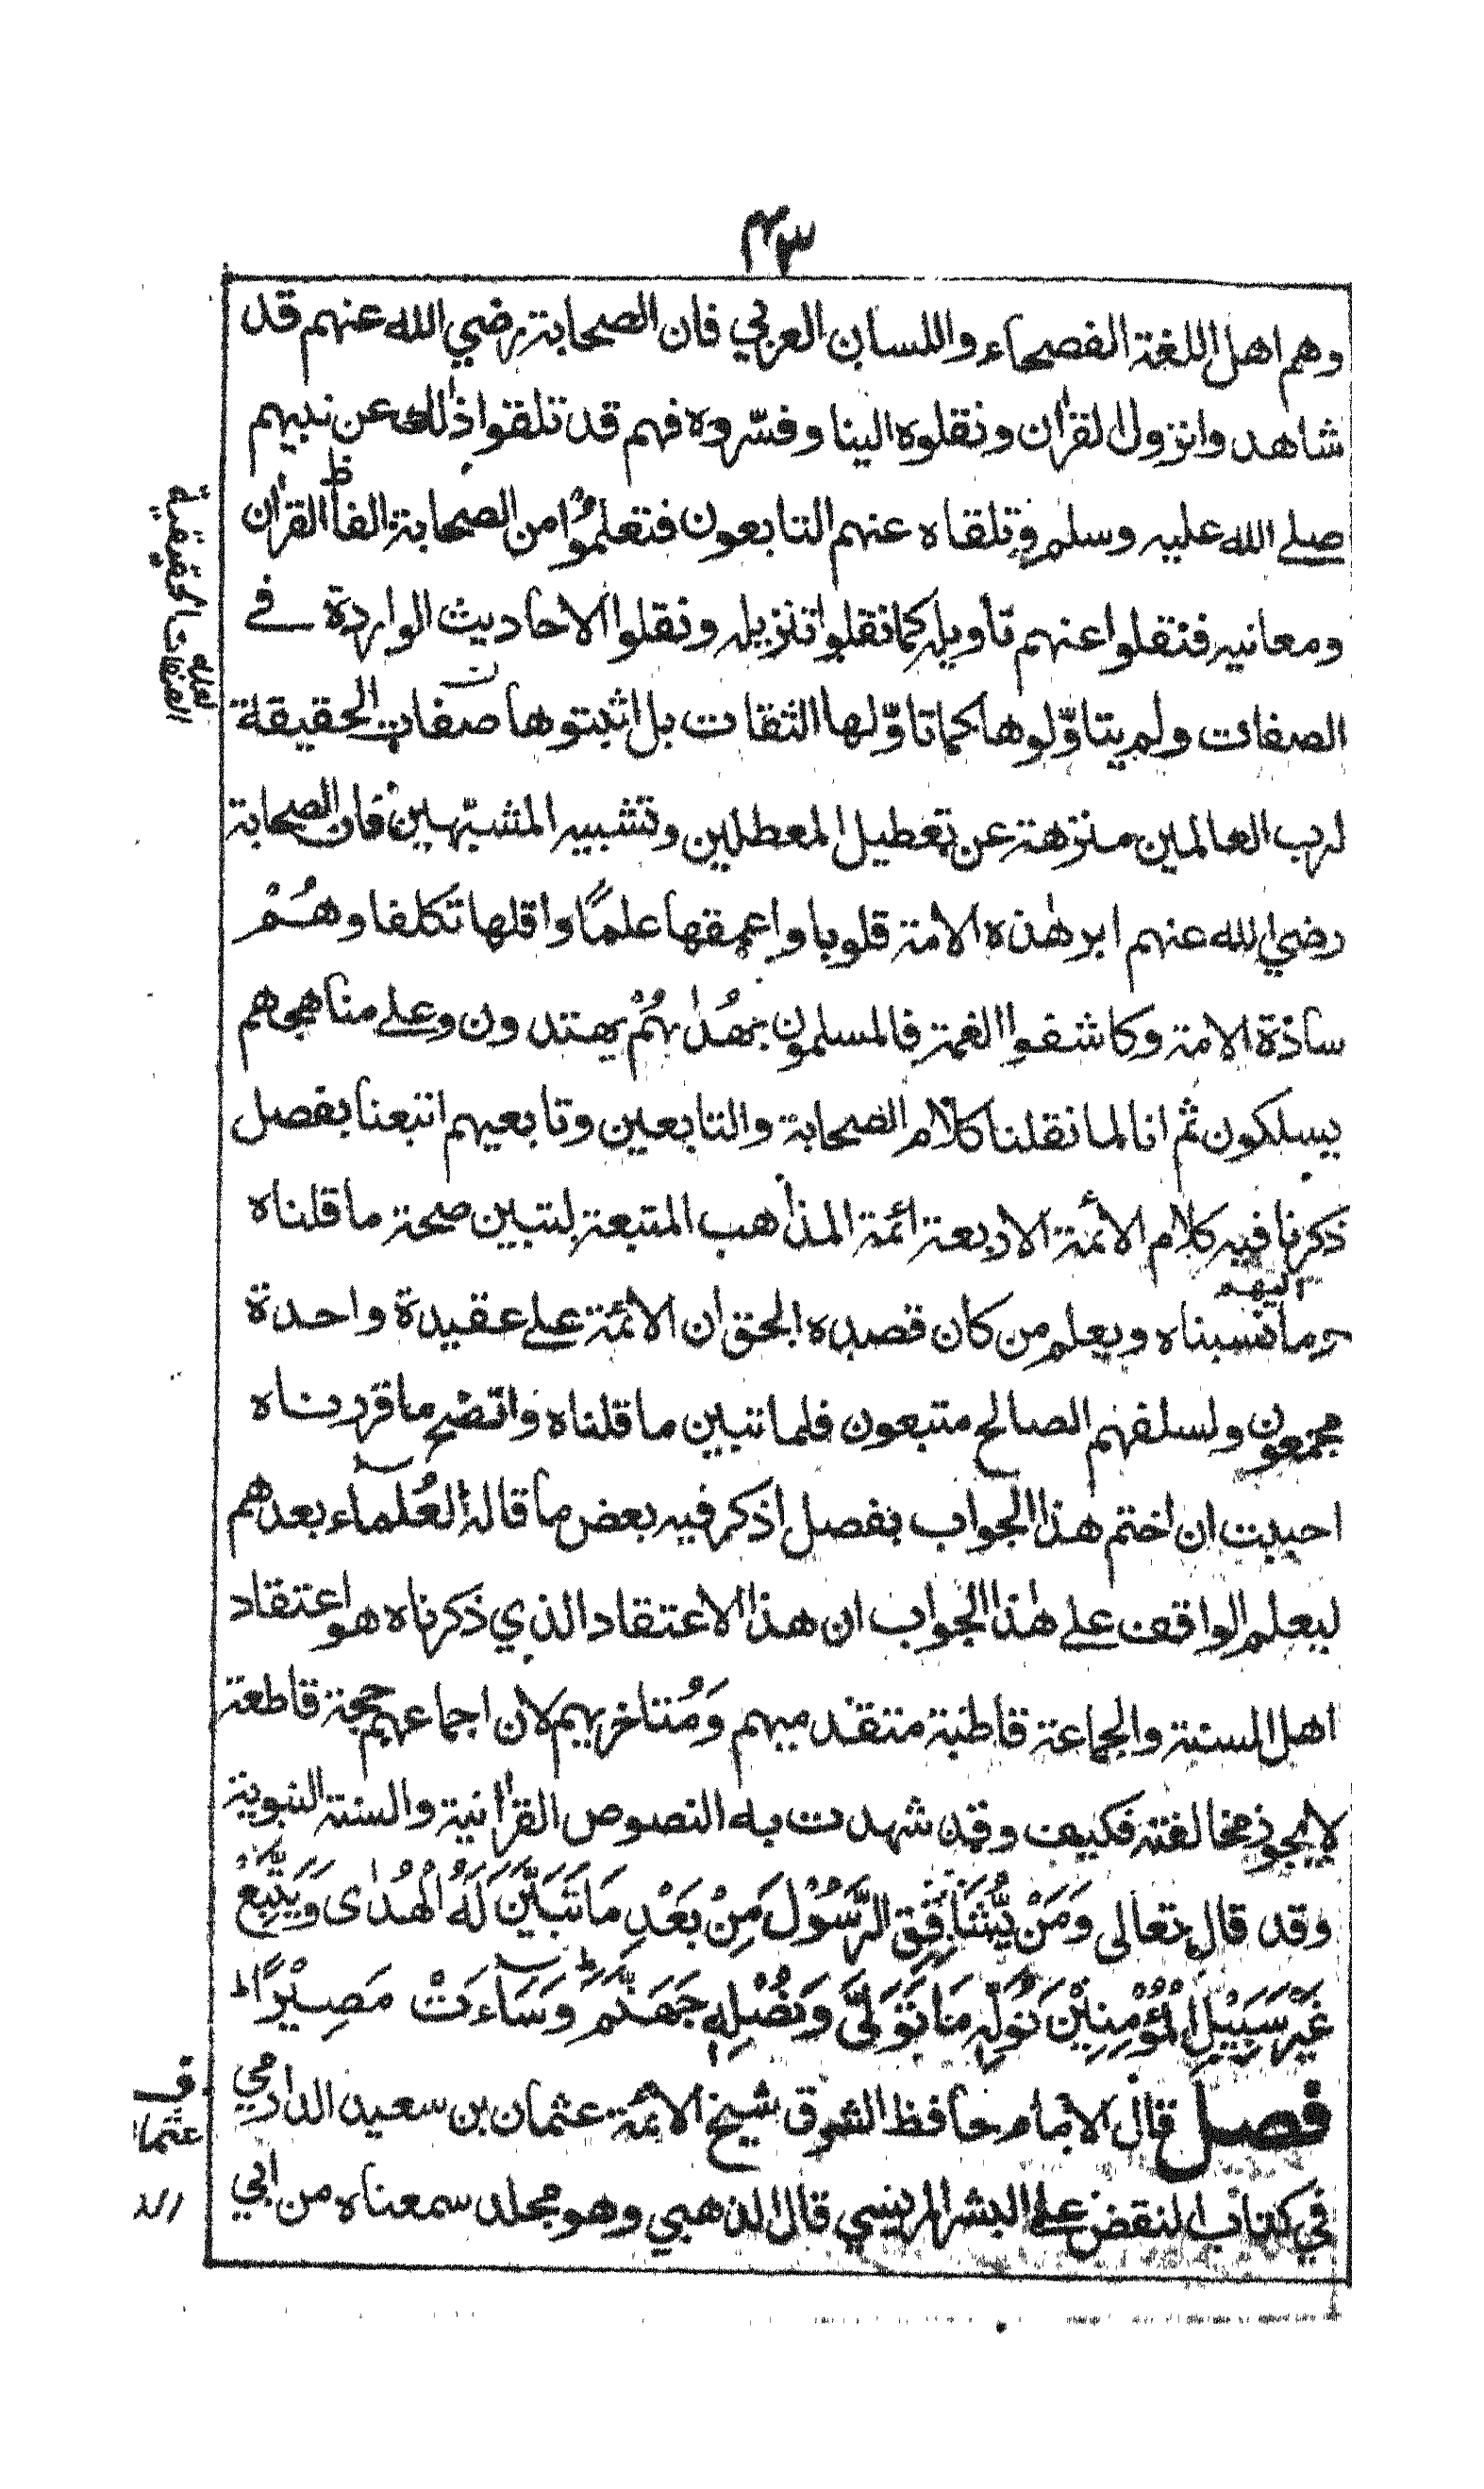 ٤٣
وهم اهل اللغة الفصحاء واللسان العربي فان الصحابة رضي الله عنهم قد
شاهدوا نزول القرأن ونقلوه الينا وفسّروه فهم قد تلقوا ذلك عن نبيهم
صلے الله عليه وسلم وتلقاه عنهم التابعون فتعلمُوا من الصحابة الفاظ القرأن
ومعانيه فنقلوا عنهم تأويله كما نقلوا تنزيله ونقلوا الاحاديث الواردة في
الصفات ولم يتاوّلوها كما تاوّلها الثقات بل اثبتوها صفات الحقيقة
لعله الصفات الحقيقية
لرب العالمين منزهة عن تعطيل المعطلين وتشبيه المشبّهين فان الصحابة
رضي الله عنهم ابر هٰذه الامة قلوبا واعمقها علمًا واقلها تكلفا وهُمْ
ساذة الامة وكاشفوا الغمة فالمسلمون بهُدٰىهُمْ يهتدون وعلے مناهجهم
يسلكون ثم انا لما نقلنا كلام الصحابة والتابعين وتابعيهم اتبعنا بفصل
ذكرنا فيه كلام الأئمة الاربعة ائمة المذاهب المتبعة لتبيين صحة ما قلناه
وما نسبناه اليهم ويعلم من كان قصده الحق ان الائمة علے عقيدة واحدة
مجمعون ولسلفهم الصالح متبعون فلما تبين ما قلناه واتضح ما قررناه
احببت ان اختم هذا الجواب بفصل اذكر فيه بعض ما قاله العُلماء بعدهم
ليعلم الواقف علے هٰذا الجواب ان هذا الاعتقاد الذي ذكرناه هو اعتقاد
اهل السنة والجماعة قاطبة متقدميهم وَمُتاخريهم لان اجماعهم حجة قاطعة
لايجوز مخالفته فكيف وقد شهدت به النصوص القرأنية والسنة النبوية
وقد قال تعالى وَمَنْ يُّشَاقِقِ الرَّسُوْلَ مِنْ بَعْدِ مَا تَبَيَّنَ لَهُ الْهُدٰى وَيَتَّبِعْ
غَيْرَ سَبِيْلِ الْمُؤْمِنِيْنَ نُوَلِّهٖ مَا تَوَلّٰى وَنُصْلِهٖ جَهَنَّمَ وَسَاءَتْ مَصِيْرًا
فصل قال الامام حافظ الشرق شيخ الائمة عثمان بن سعيد الدارمي
ف عثما
في كتاب النقض علے البشر المريسي قال الذهبي وهو مجلد سمعناه من ابي